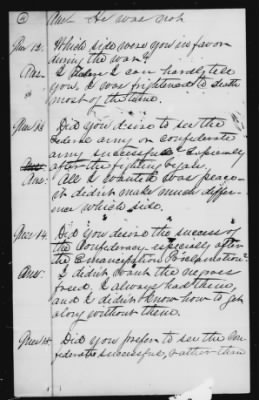 Ans. He was not
Ques 12. Which side were you in favor
during the war?
Ans. I I can hardly tell
you, I was frightened to death
most of the time.
Ques 13. Did you desire to see the
Federal army or confederate
army successful especially
after the fighting began.
Ans. All I wanted was peace
it didnt make much differ-
ence which side.
Ques 14. Did you desire the success of
the Confederacy especially after
the Emancipation Proclamation?
Ans. I didnt want the negroes
freed. I always had them,
and I didnt know how to get
along without them.
Ques 15. Did you prefer to see the Con-
federates successful, rather than